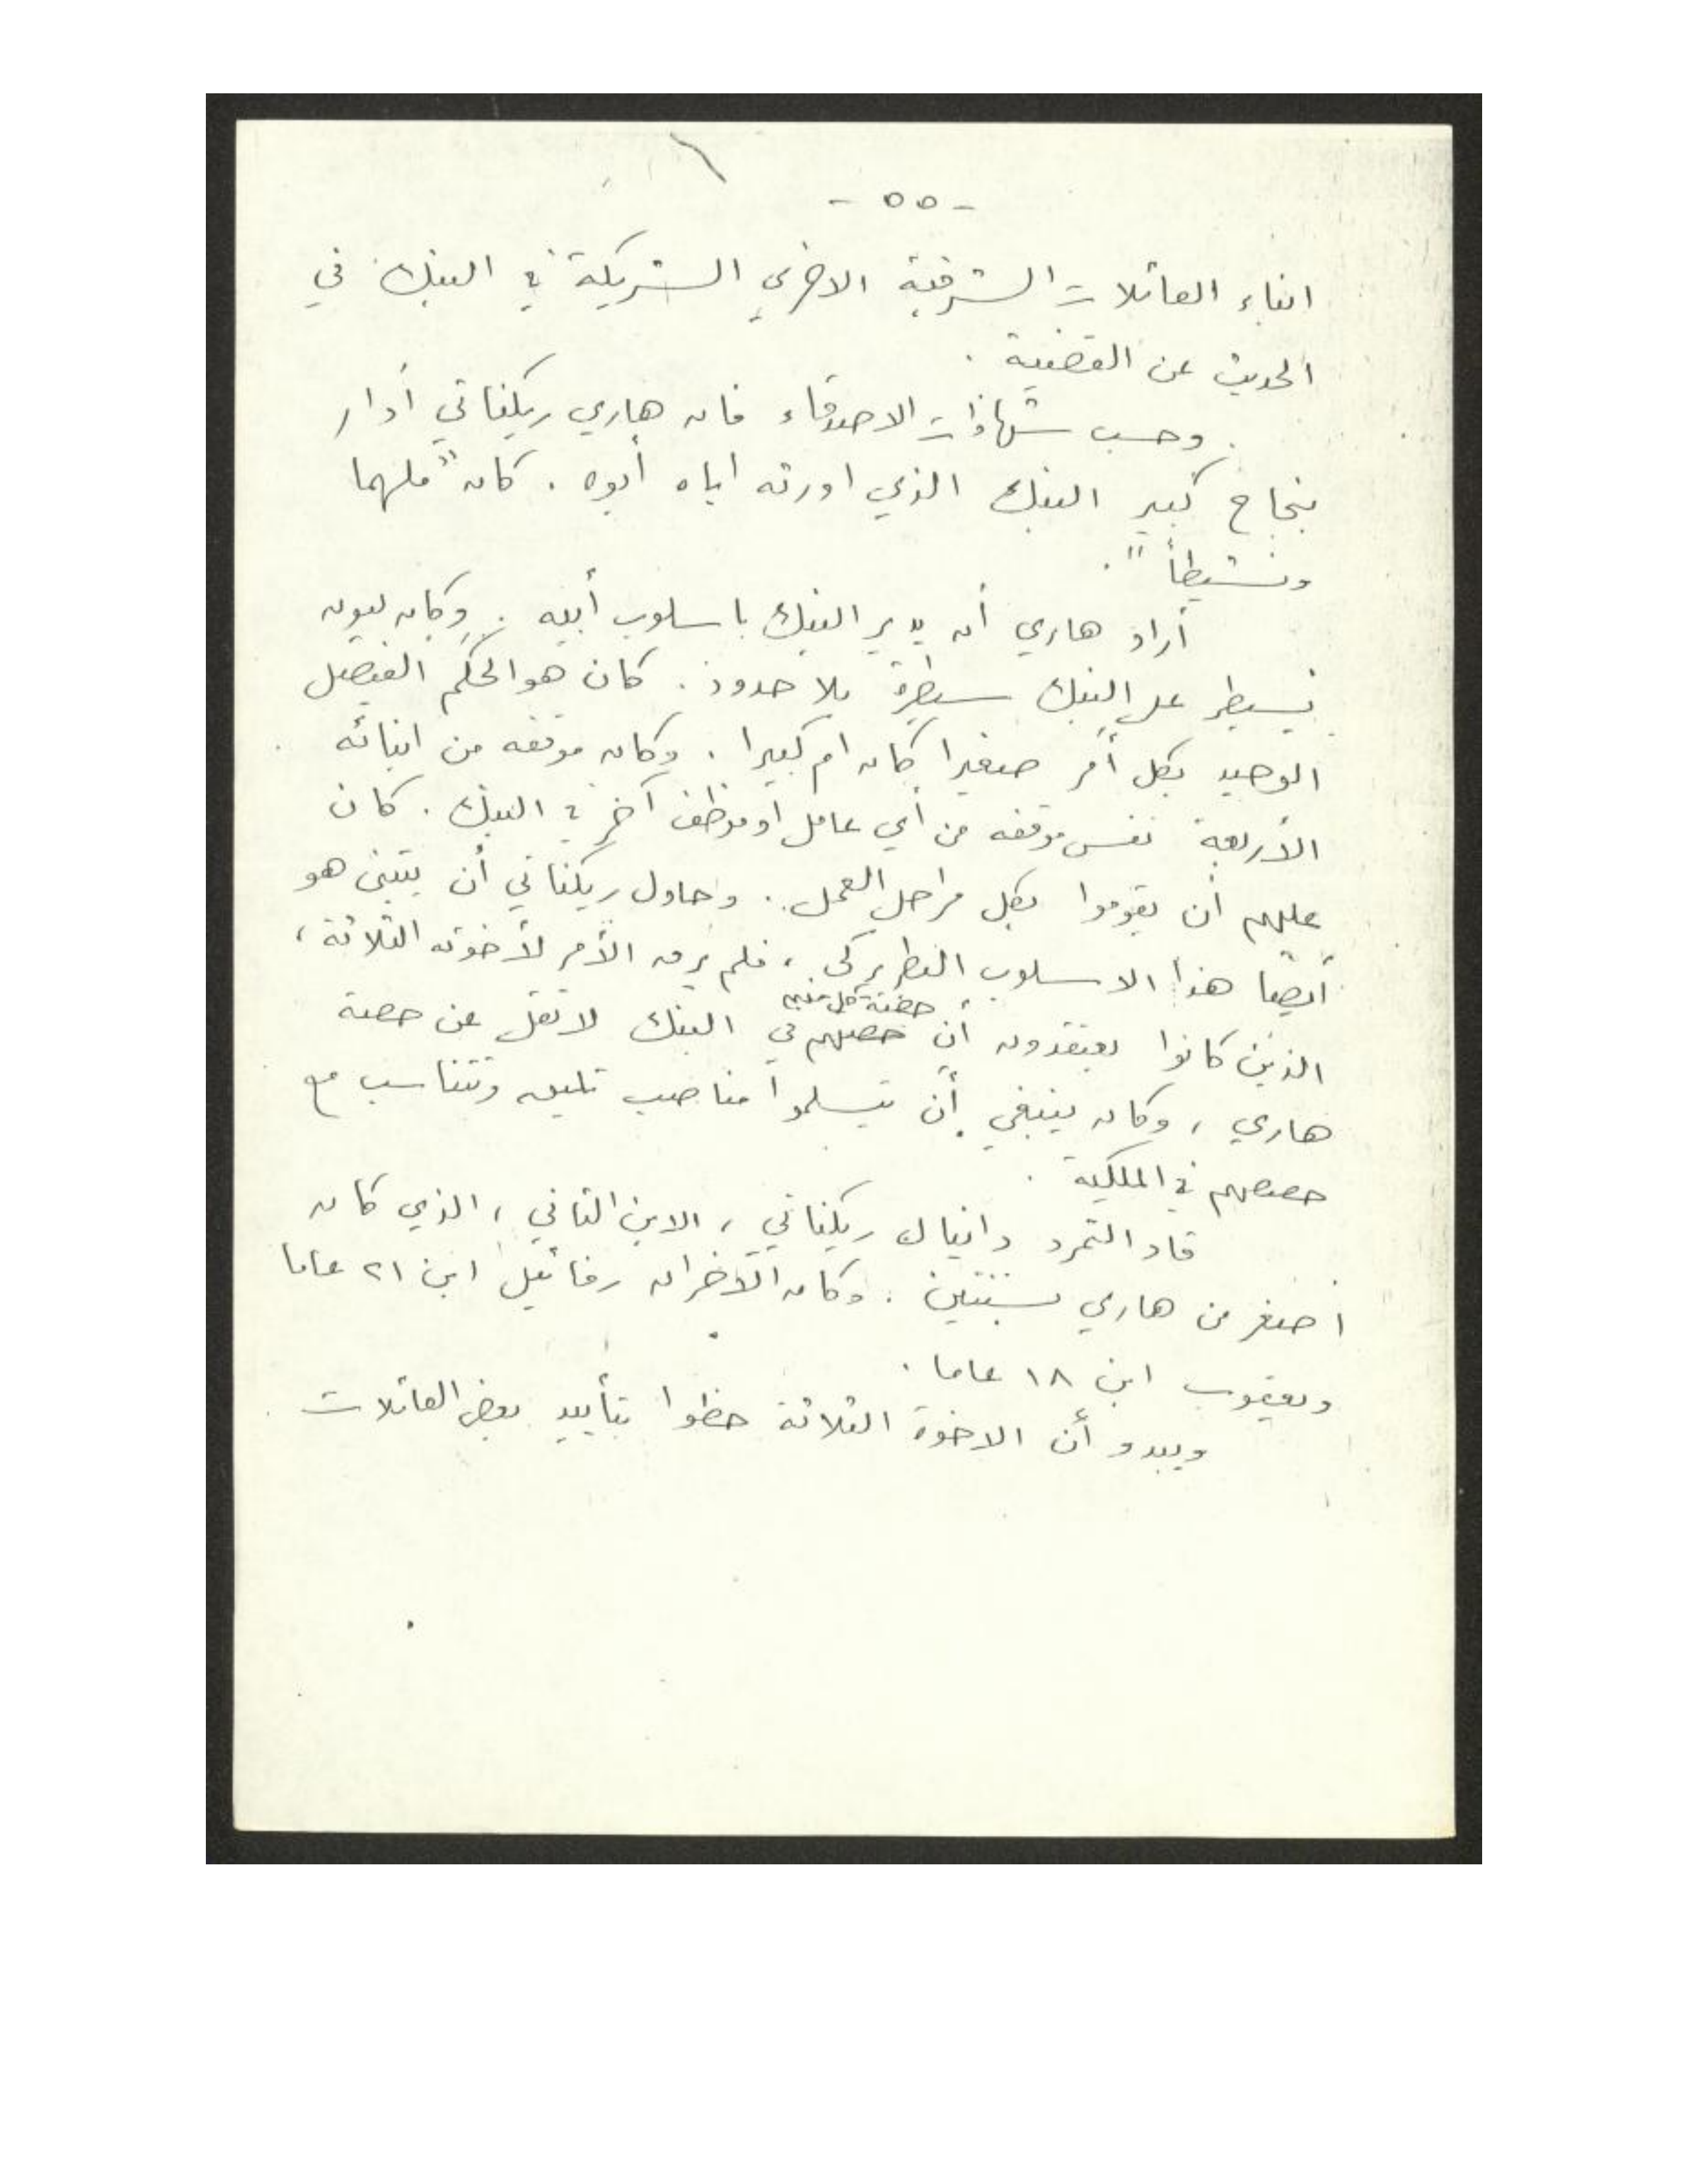 - ٥٥ -
ابناء العائلات الشرقية الاخرى الشريكة في البنك في
الحديث عن القضية .
وحسب شهادات الاصدقاء فان هاري ريكناتي أدار
بنجاح كبير البنك الذي اورثه اياه أبوه . كان " ملهما
ونشيطاً " .
أراد هاري أن يدير البنك باسلوب أبيه . وكان ليون
يسيطر على البنك سيطرة بلا حدود . كان هو الحكم الفيصل
الوحيد بكل أمر صغيرا كان ام كبيرا . وكان موقفه من ابنائه
الأربعة نفس موقفه من أي عامل او موظف آخر في البنك . كان
عليهم أن يقوموا بكل مراحل العمل . وحاول ريكناتي أن يتبنى هو
أيضا هذا الاسلوب البطريركي ، فلم يرق الأمر لأخوته الثلاثة ،
حصة كل منهم
الذين كانوا يعتقدون أن حصتهم في البنك لا تقل عن حصة
هاري ، وكان ينبغي أن يتسلموا مناصب تليق وتتناسب مع
حصصهم في الملكية .
قاد التمرد دانيال ريكناتي ، الابن الثاني ، الذي كان
اصغر من هاري بسنتين . وكان الآخران رفائيل ابن ٢١ عاما
ويعقوب ابن ١٨ عاما .
ويبدو أن الاخوة الثلاثة حظوا بتأييد بعض العائلات